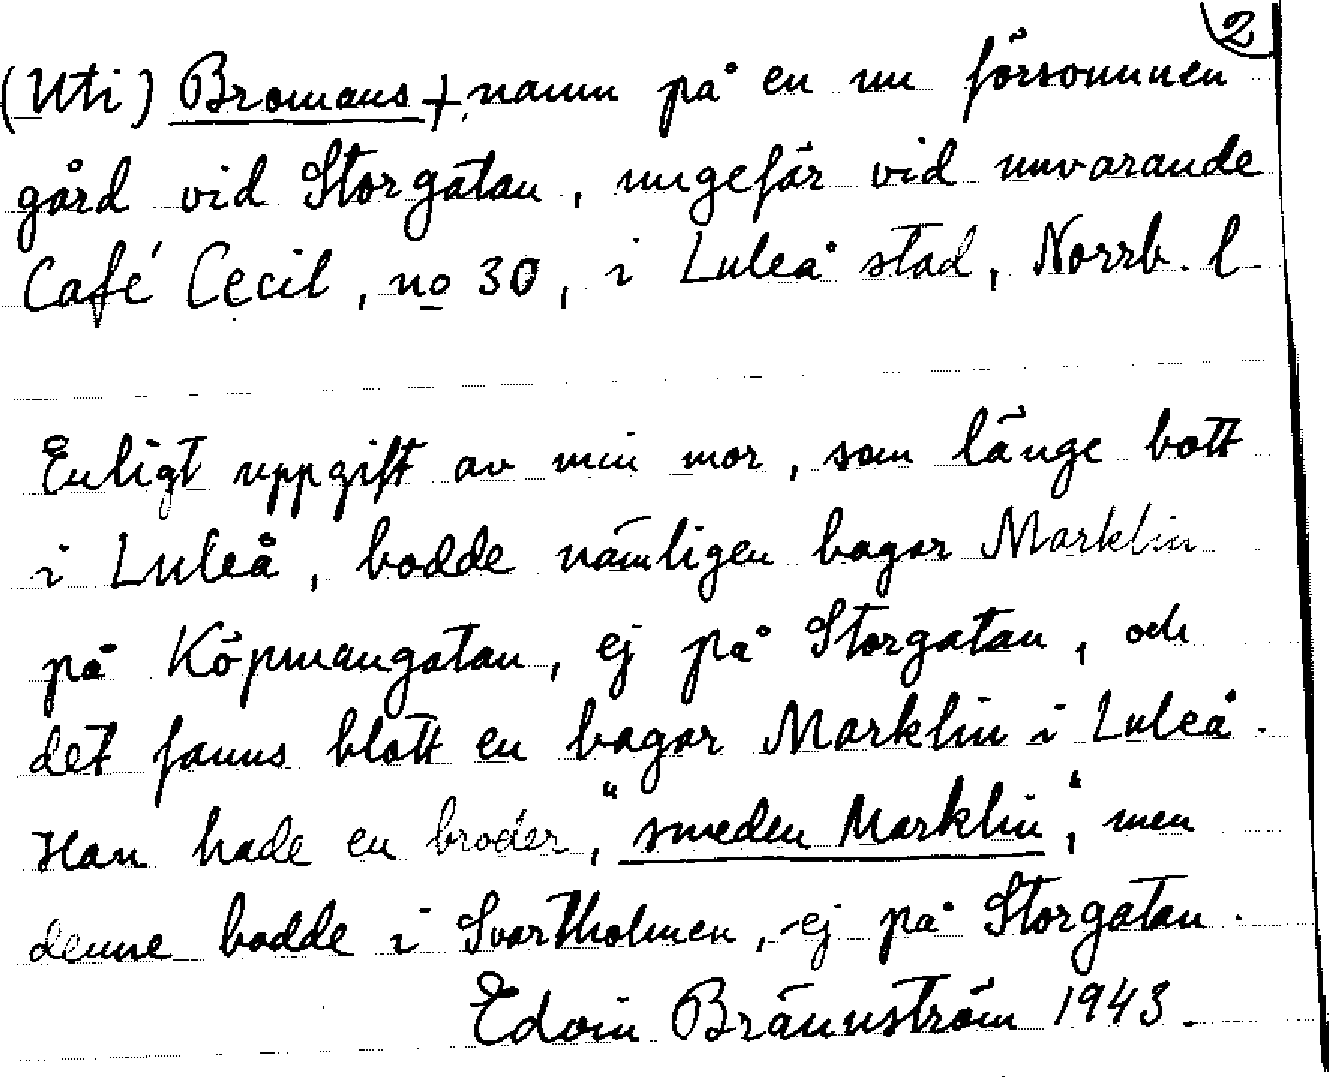 2
(Uti) Bromans +, namn på en nu försvunnen
gård vid Storgatan, ungefär vid nuvarande
Café Cecil, no 30, i Luleå stad, Norrb. l
Enligt uppgift av min mor, som länge bott
i Luleå, bodde nämligen bagar Marklin
på Köpmangatan, ej på Storgatan, och
det fanns blott en bagar Marklin i Luleå.
Han hade en broder, "smeden Marklin", men
denne bodde i Svartholmen, ej på Storgatan.
Edvin Brännström 1943.